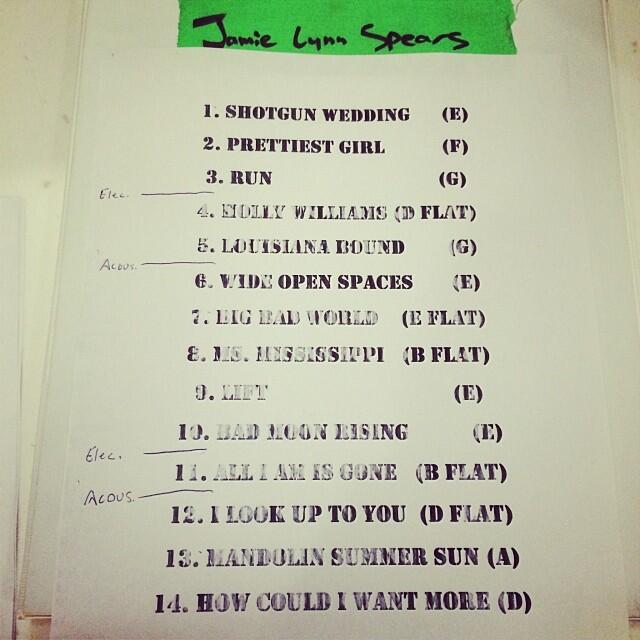 Jamie Lynn Spears
1. SHOTGUN WEDDING (E)
2. PRETTIEST GIRL (F)
3. RUN (G)
Elec.
4. HOLLY WILLIAMS (D FLAT)
5. LOUISIANA BOUND (G)
Acous.
6. WIDE OPEN SPACES (E)
7. BIG BAD WORLD (E FLAT)
8. MS. MISSISSIPPI (B FLAT)
9. LIFT (E)
10. BAD MOON RISING (E)
Elec.
11. ALL I AM IS GONE (B FLAT)
Acous.
12. I LOOK UP TO YOU (D FLAT)
13. MANDOLIN SUMMER SUN (A)
14. HOW COULD I WANT MORE (D)